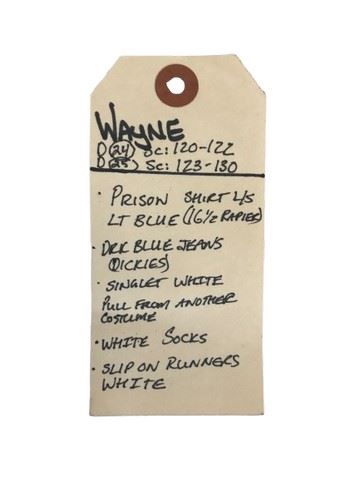 WAYNE
D(24) Sc: 120-122
D(25) Sc: 123-130
· PRISON SHIRT L/S
LT BLUE (16½ RAPIES)
· DRK BLUE JEANS
(DICKIES)
· SINGLET WHITE
PULL FROM ANOTHER
COSTUME
· WHITE SOCKS
· SLIP ON RUNNERS
WHITE